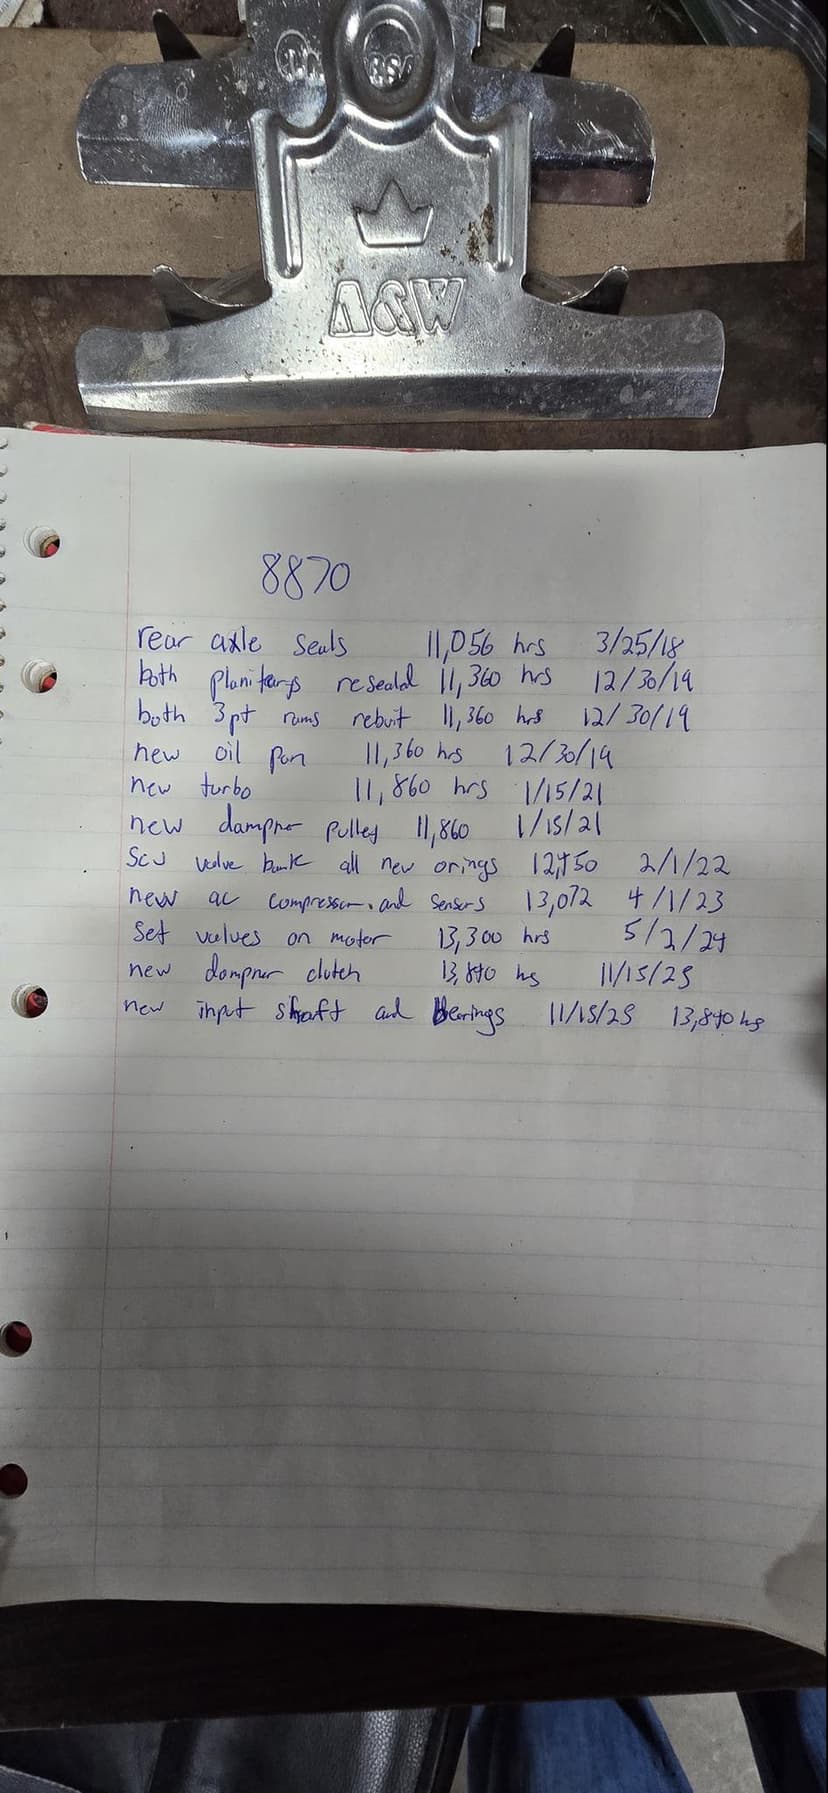 U.S.A.
A&W
8870
rear axle seals 11,056 hrs 3/25/18
both planiterys resealed 11,360 hrs 12/30/19
both 3pt rams rebuit 11,360 hrs 12/30/19
new oil pan 11,360 hrs 12/30/19
new turbo 11,860 hrs 1/15/21
new dampner pulley 11,860 1/15/21
scv valve bank all new orings 2/1/22
new ac compressor and sensors 13,072 4/1/23
Set valves on motor 13,300 hrs 5/2/24
new dampner clutch 13,840 hs 11/15/25
new input shaft and Bearings 11/15/25 13,840 hs